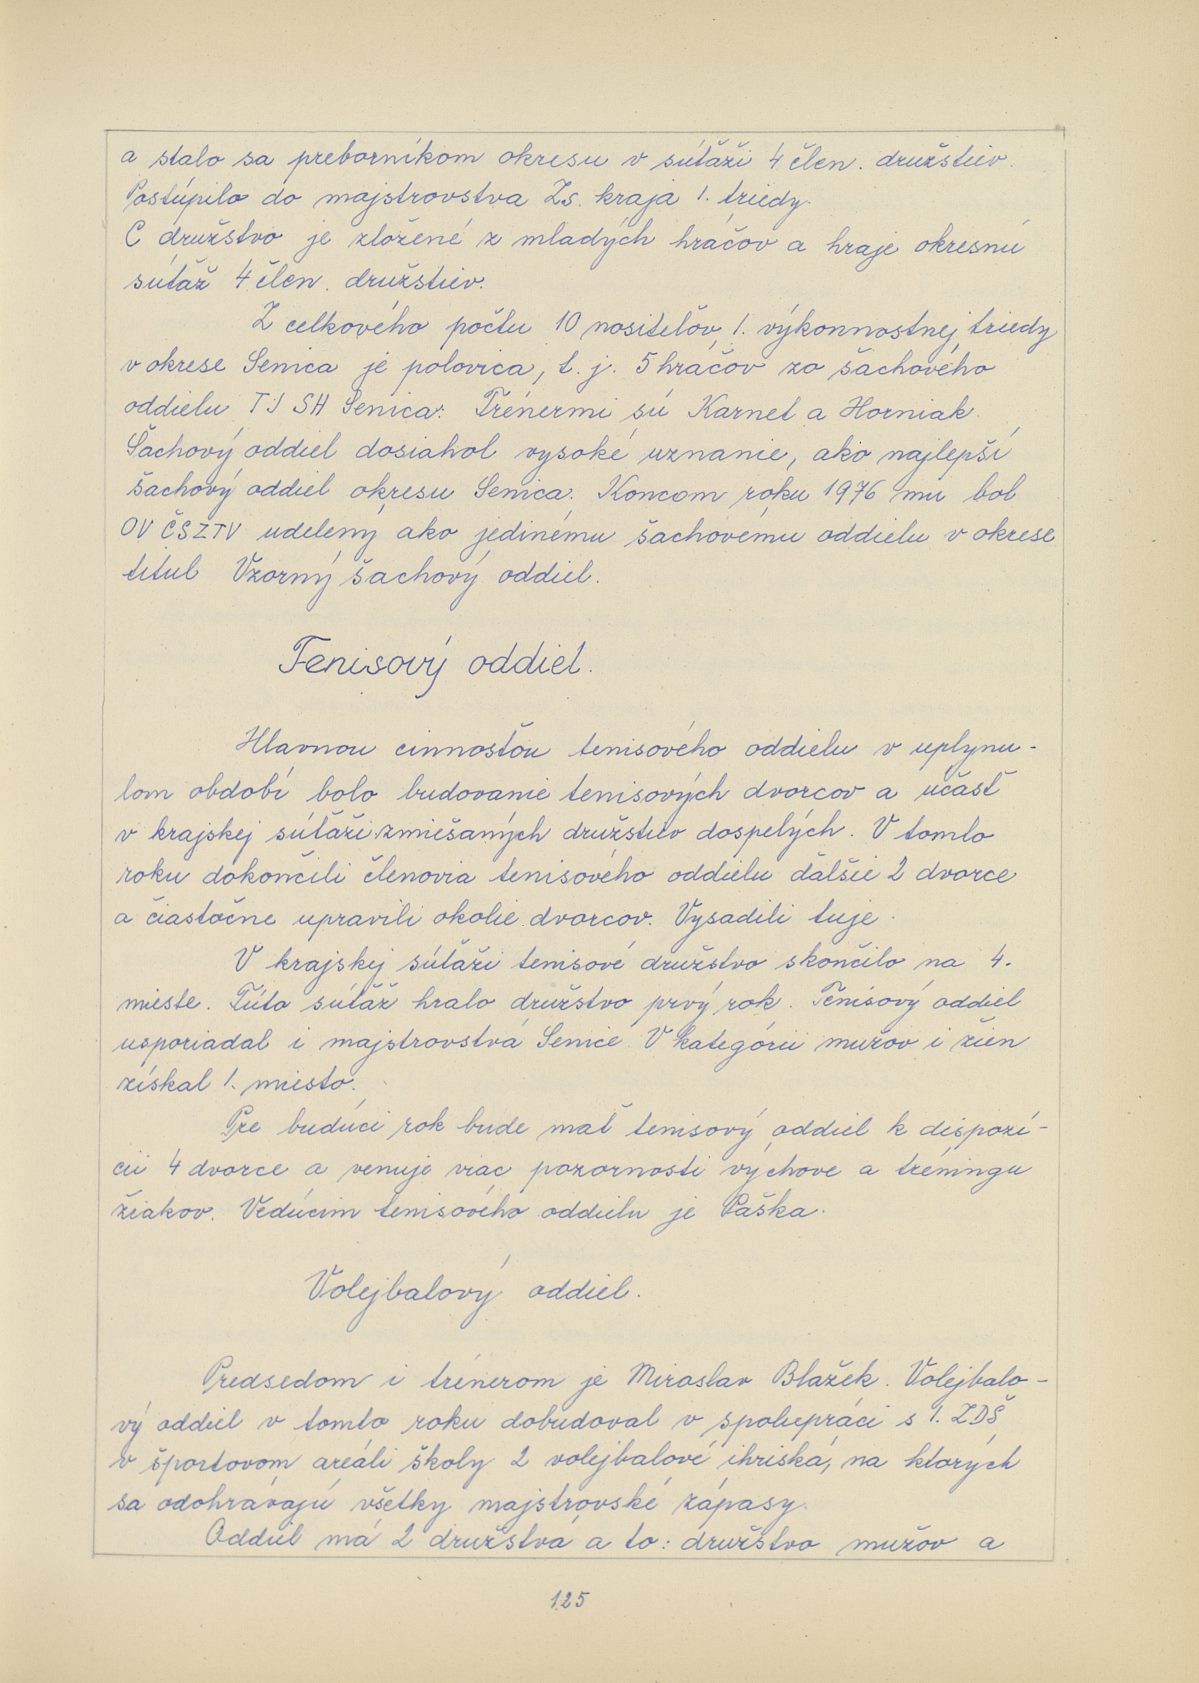 a stalo sa preborníkom okresu v súťaži 4 člen. družstiev.
Postúpilo do majstrovstva Zs. kraja 1. triedy.
C družstvo je zložené z mladých hráčov a hraje okresnú
súťaž 4 člen. družstiev.
Z celkového počtu 10 nositeľov 1. výkonnostnej triedy
v okrese Senica je polovica, t. j. 5 hráčov zo šachového
oddielu TJ SH Senica. Trénermi sú Karnet a Horniak.
Šachový oddiel dosiahol vysoké uznanie, ako najlepší
šachový oddiel okresu Senica. Koncom roku 1976 mu bol
OV ČSZTV udelený ako jedinému šachovému oddielu v okrese
titul Vzorný šachový oddiel.
Tenisový oddiel.
Hlavnou cinnosťou tenisového oddielu v uplynu-
lom období bolo budovanie tenisových dvorcov a účasť
v krajskej súťaži zmiešaných družstiev dospelých. V tomto
roku dokončili členovia tenisového oddielu ďalšie 2 dvorce
a čiastočne upravili okolie dvorcov. Vysadili tuje.
V krajskej súťaži tenisové družstvo skončilo na 4.
mieste. Túto súťaž hralo družstvo prvý rok. Tenisový oddiel
usporiadal i majstrovstvá Senice. V kategórii mužov i žien
získal 1. miesto.
Pre budúci rok bude mať tenisový oddiel k dispozí-
cii 4 dvorce a venuje viac pozornosti výchove a tréningu
žiakov. Vedúcim tenisového oddielu je Paška.
Volejbalový oddiel.
Predsedom i trénerom je Miroslav Blažek. Volejbalo-
vý oddiel v tomto roku dobudoval v spolupráci s 1. ZDŠ
v športovom areáli školy 2 volejbalové ihriská, na ktorých
sa odohrávajú všetky majstrovské zápasy.
Oddiel má 2 družstvá a to: družstvo mužov a
125